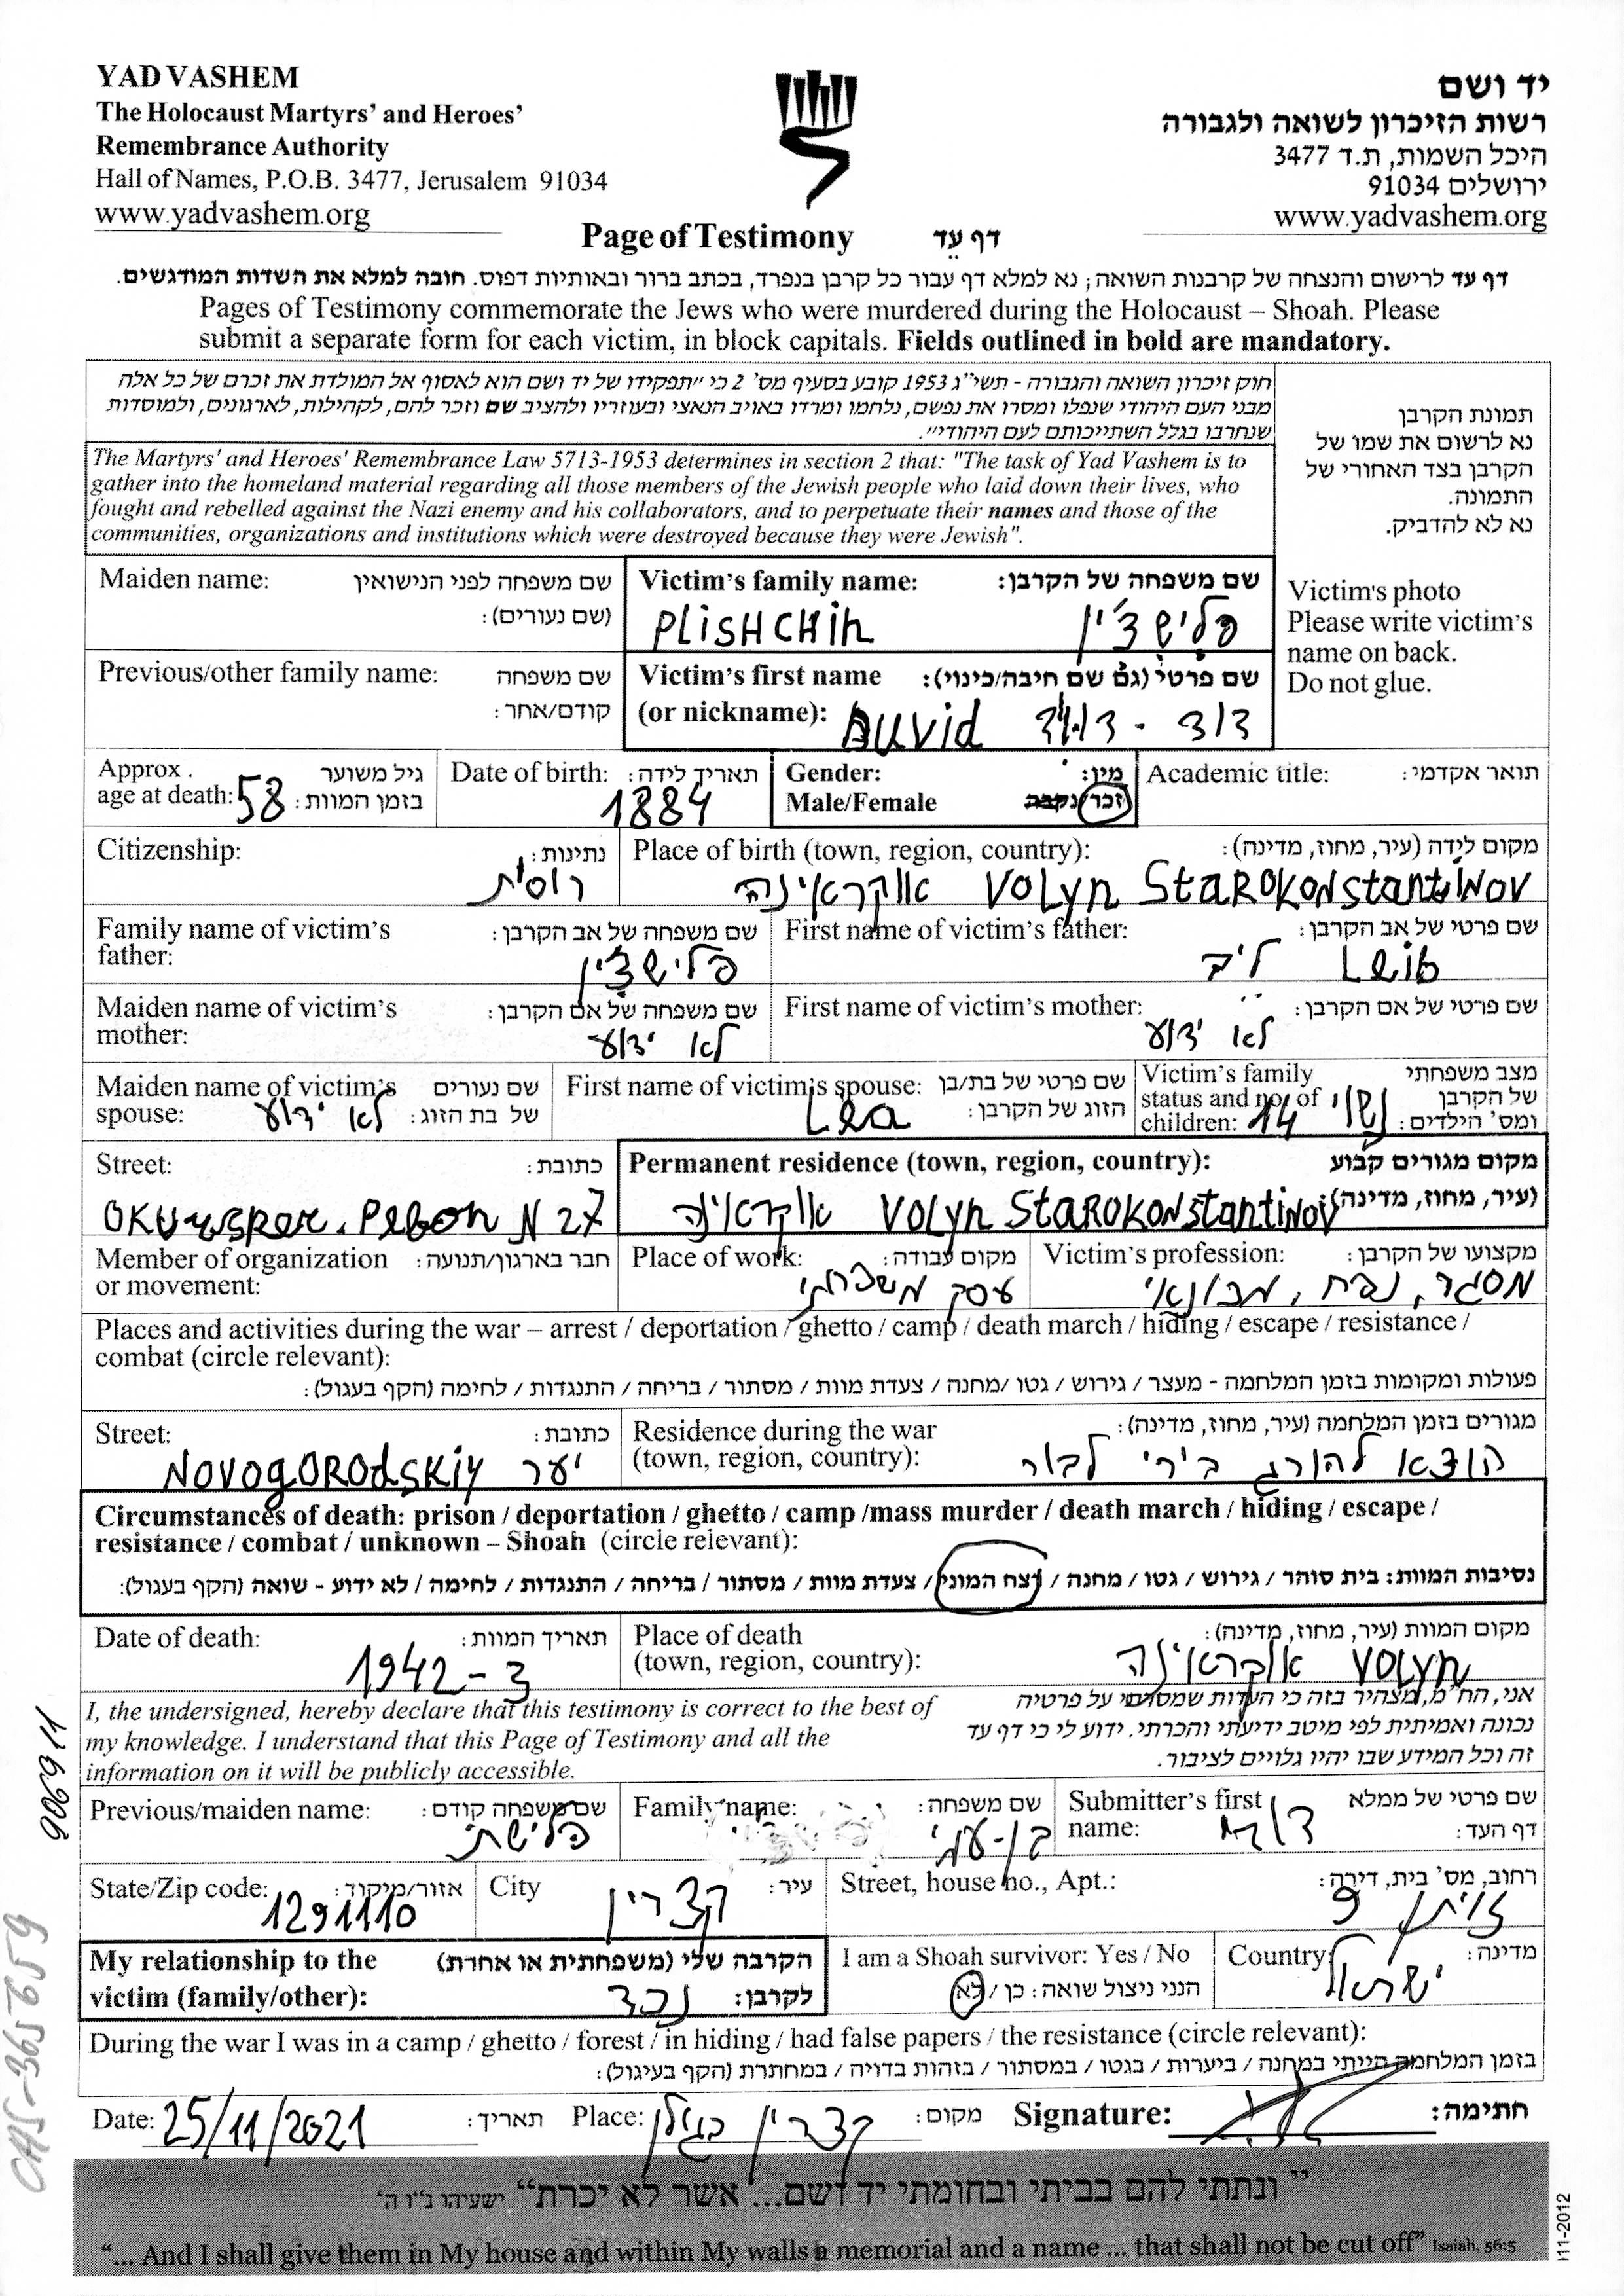 YAD VASHEM
The Holocaust Martyrs' and Heroes'
Remembrance Authority
Hall of Names, P.O.B. 3477, Jerusalem 91034
www.yadvashem.org
יד ושם
רשות הזיכרון לשואה ולגבורה
היכל השמות, ת.ד 3477
ירושלים 91034
www.yadvashem.org
Page of Testimony דף עֵד
דף עד לרישום והנצחה של קרבנות השואה; נא למלא דף עבור כל קרבן בנפרד, בכתב ברור ובאותיות דפוס. חובה למלא את השדות המודגשים.
Pages of Testimony commemorate the Jews who were murdered during the Holocaust – Shoah. Please
submit a separate form for each victim, in block capitals. Fields outlined in bold are mandatory.
חוק זיכרון השואה והגבורה - תשי"ג 1953 קובע בסעיף מס' 2 כי "תפקידו של יד ושם הוא לאסוף אל המולדת את זכרם של כל אלה
מבני העם היהודי שנפלו ומסרו את נפשם, נלחמו ומרדו באויב הנאצי ובעוזריו ולהציב שם וזכר להם, לקהילות, לארגונים, ולמוסדות
שנחרבו בגלל השתייכותם לעם היהודי".
The Martyrs' and Heroes' Remembrance Law 5713-1953 determines in section 2 that: "The task of Yad Vashem is to
gather into the homeland material regarding all those members of the Jewish people who laid down their lives, who
fought and rebelled against the Nazi enemy and his collaborators, and to perpetuate their names and those of the
communities, organizations and institutions which were destroyed because they were Jewish".
תמונת הקרבן
נא לרשום את שמו של
הקרבן בצד האחורי של
התמונה.
נא לא להדביק.
Victim's photo
Please write victim's
name on back.
Do not glue.
Maiden name: שם משפחה לפני הנישואין
(שם נעורים):
Victim's family name: שם משפחה של הקרבן:
PLISHCHIN פלישצ'ין
Previous/other family name: שם משפחה
קודם/אחר:
Victim's first name שם פרטי (גם שם חיבה/כינוי):
(or nickname): Duvid דוד -
Approx. גיל משוער
age at death: 58 בזמן המוות:
Date of birth: תאריך לידה:
1884
Gender: מין:
Male/Female זכר/נקבה
Academic title: תואר אקדמי:
Citizenship: נתינות:
רוסית
Place of birth (town, region, country): מקום לידה (עיר, מחוז, מדינה):
אוקראינה VOLYN STAROKONSTANTINOV
Family name of victim's שם משפחה של אב הקרבן:
father: פלישצ'ין
First name of victim's father: שם פרטי של אב הקרבן:
ליב Leib
Maiden name of victim's שם משפחה של אם הקרבן:
mother: לא ידוע
First name of victim's mother: שם פרטי של אם הקרבן:
לא ידוע
Maiden name of victim's שם נעורים
spouse: לא ידוע של בת הזוג:
First name of victim's spouse: שם פרטי של בת/בן
הזוג של הקרבן: Lea
Victim's family מצב משפחתי
status and no. of של הקרבן
children: 14 נשוי ומס' הילדים:
Street: כתובת:
N 27
Permanent residence (town, region, country): מקום מגורים קבוע
(עיר, מחוז, מדינה) אוקראינה VOLYN STAROKONSTANTINOV
Member of organization חבר בארגון/תנועה:
or movement:
Place of work: מקום עבודה:
עסק משפחתי
Victim's profession: מקצועו של הקרבן:
מסגר, נפח, מכונאי
Places and activities during the war – arrest / deportation / ghetto / camp / death march / hiding / escape / resistance /
combat (circle relevant):
פעולות ומקומות בזמן המלחמה - מעצר / גירוש / גטו /מחנה / צעדת מוות / מסתור / בריחה / התנגדות / לחימה (הקף בעגול):
Street: כתובת:
NOVOGORODSKIY יער
Residence during the war מגורים בזמן המלחמה (עיר, מחוז, מדינה):
(town, region, country): הוצא להורג בירי לבור
Circumstances of death: prison / deportation / ghetto / camp /mass murder / death march / hiding / escape /
resistance / combat / unknown – Shoah (circle relevant):
נסיבות המוות: בית סוהר / גירוש / גטו / מחנה / רצח המוני / צעדת מוות / מסתור / בריחה / התנגדות / לחימה / לא ידוע - שואה (הקף בעגול):
Date of death: תאריך המוות:
1942-3
Place of death מקום המוות (עיר, מחוז, מדינה):
(town, region, country): אוקראינה VOLYN
I, the undersigned, hereby declare that this testimony is correct to the best of
my knowledge. I understand that this Page of Testimony and all the
information on it will be publicly accessible.
אני, הח"מ, מצהיר בזה כי העדות שמסרתי על פרטיה
נכונה ואמיתית לפי מיטב ידיעתי והכרתי. ידוע לי כי דף עד
זה וכל המידע שבו יהיו גלויים לציבור.
Previous/maiden name: שם משפחה קודם:
פלישתי
Family name: שם משפחה:
בן-עמי
Submitter's first שם פרטי של ממלא
name: דף העד:
State/Zip code: אזור/מיקוד:
1291110
City עיר:
קצרין
Street, house no., Apt.: רחוב, מס' בית, דירה:
זויתן 9
My relationship to the הקרבה שלי (משפחתית או אחרת)
victim (family/other): נכד לקרבן:
I am a Shoah survivor: Yes / No
הנני ניצול שואה: כן / לא
Country: מדינה:
ישראל
During the war I was in a camp / ghetto / forest / in hiding / had false papers / the resistance (circle relevant):
בזמן המלחמה הייתי במחנה / ביערות / בגטו / במסתור / בזהות בדויה / במחתרת (הקף בעיגול):
Date: 25/11/2021 תאריך: Place: קצרין בגולן מקום: Signature: חתימה:
"ונתתי להם בביתי ובחומתי יד ושם... אשר לא יכרת" ישעיהו נ"ו ה'
"... And I shall give them in My house and within My walls a memorial and a name ... that shall not be cut off" Isaiah, 56:5
906911
CAS-365659
11-2012